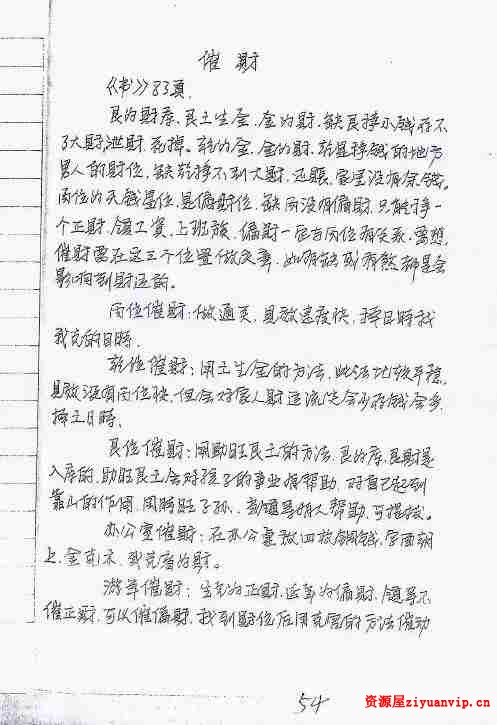 催财
《书》83页
艮为财库,艮土生金,金为财,缺艮挣小钱存不
了大财,泄财,死掉。乾为金,金为财,乾是挣钱的地方
男人的财位,缺乾挣不到大财,还账,家里没有余钱。
丙位为天钱星位,是偏财位,缺丙没有偏财,只能挣一
个正财,领工资,上班族,偏财一定与丙位有关系,要想
催财需在这三个位置做文章,此有缺或有煞都是会
影响到财运的。
丙位催财:做通天,见效速度快,择日时我
我克的日时。
乾位催财:用土生金的方法,此法比较平稳,
见效没有丙位快,但会对家人财运流失会少存钱会多,
择土日时。
艮位催财:用助旺艮土的方法,艮为库,艮财是
入库的,助旺艮土会对孩子的事业有帮助,对自己起到
靠山的作用,用助旺子孙,领导有人帮助,可提拔。
办公室催财:在办公桌放四枚铜钱,字面朝
上,金克木,我克者为财。
游年催财:生气为正财,延年为偏财,领导不
催正财,可以催偏财,找到财位后用克宫的方法催动
54
资源屋ziyuanvip.cn